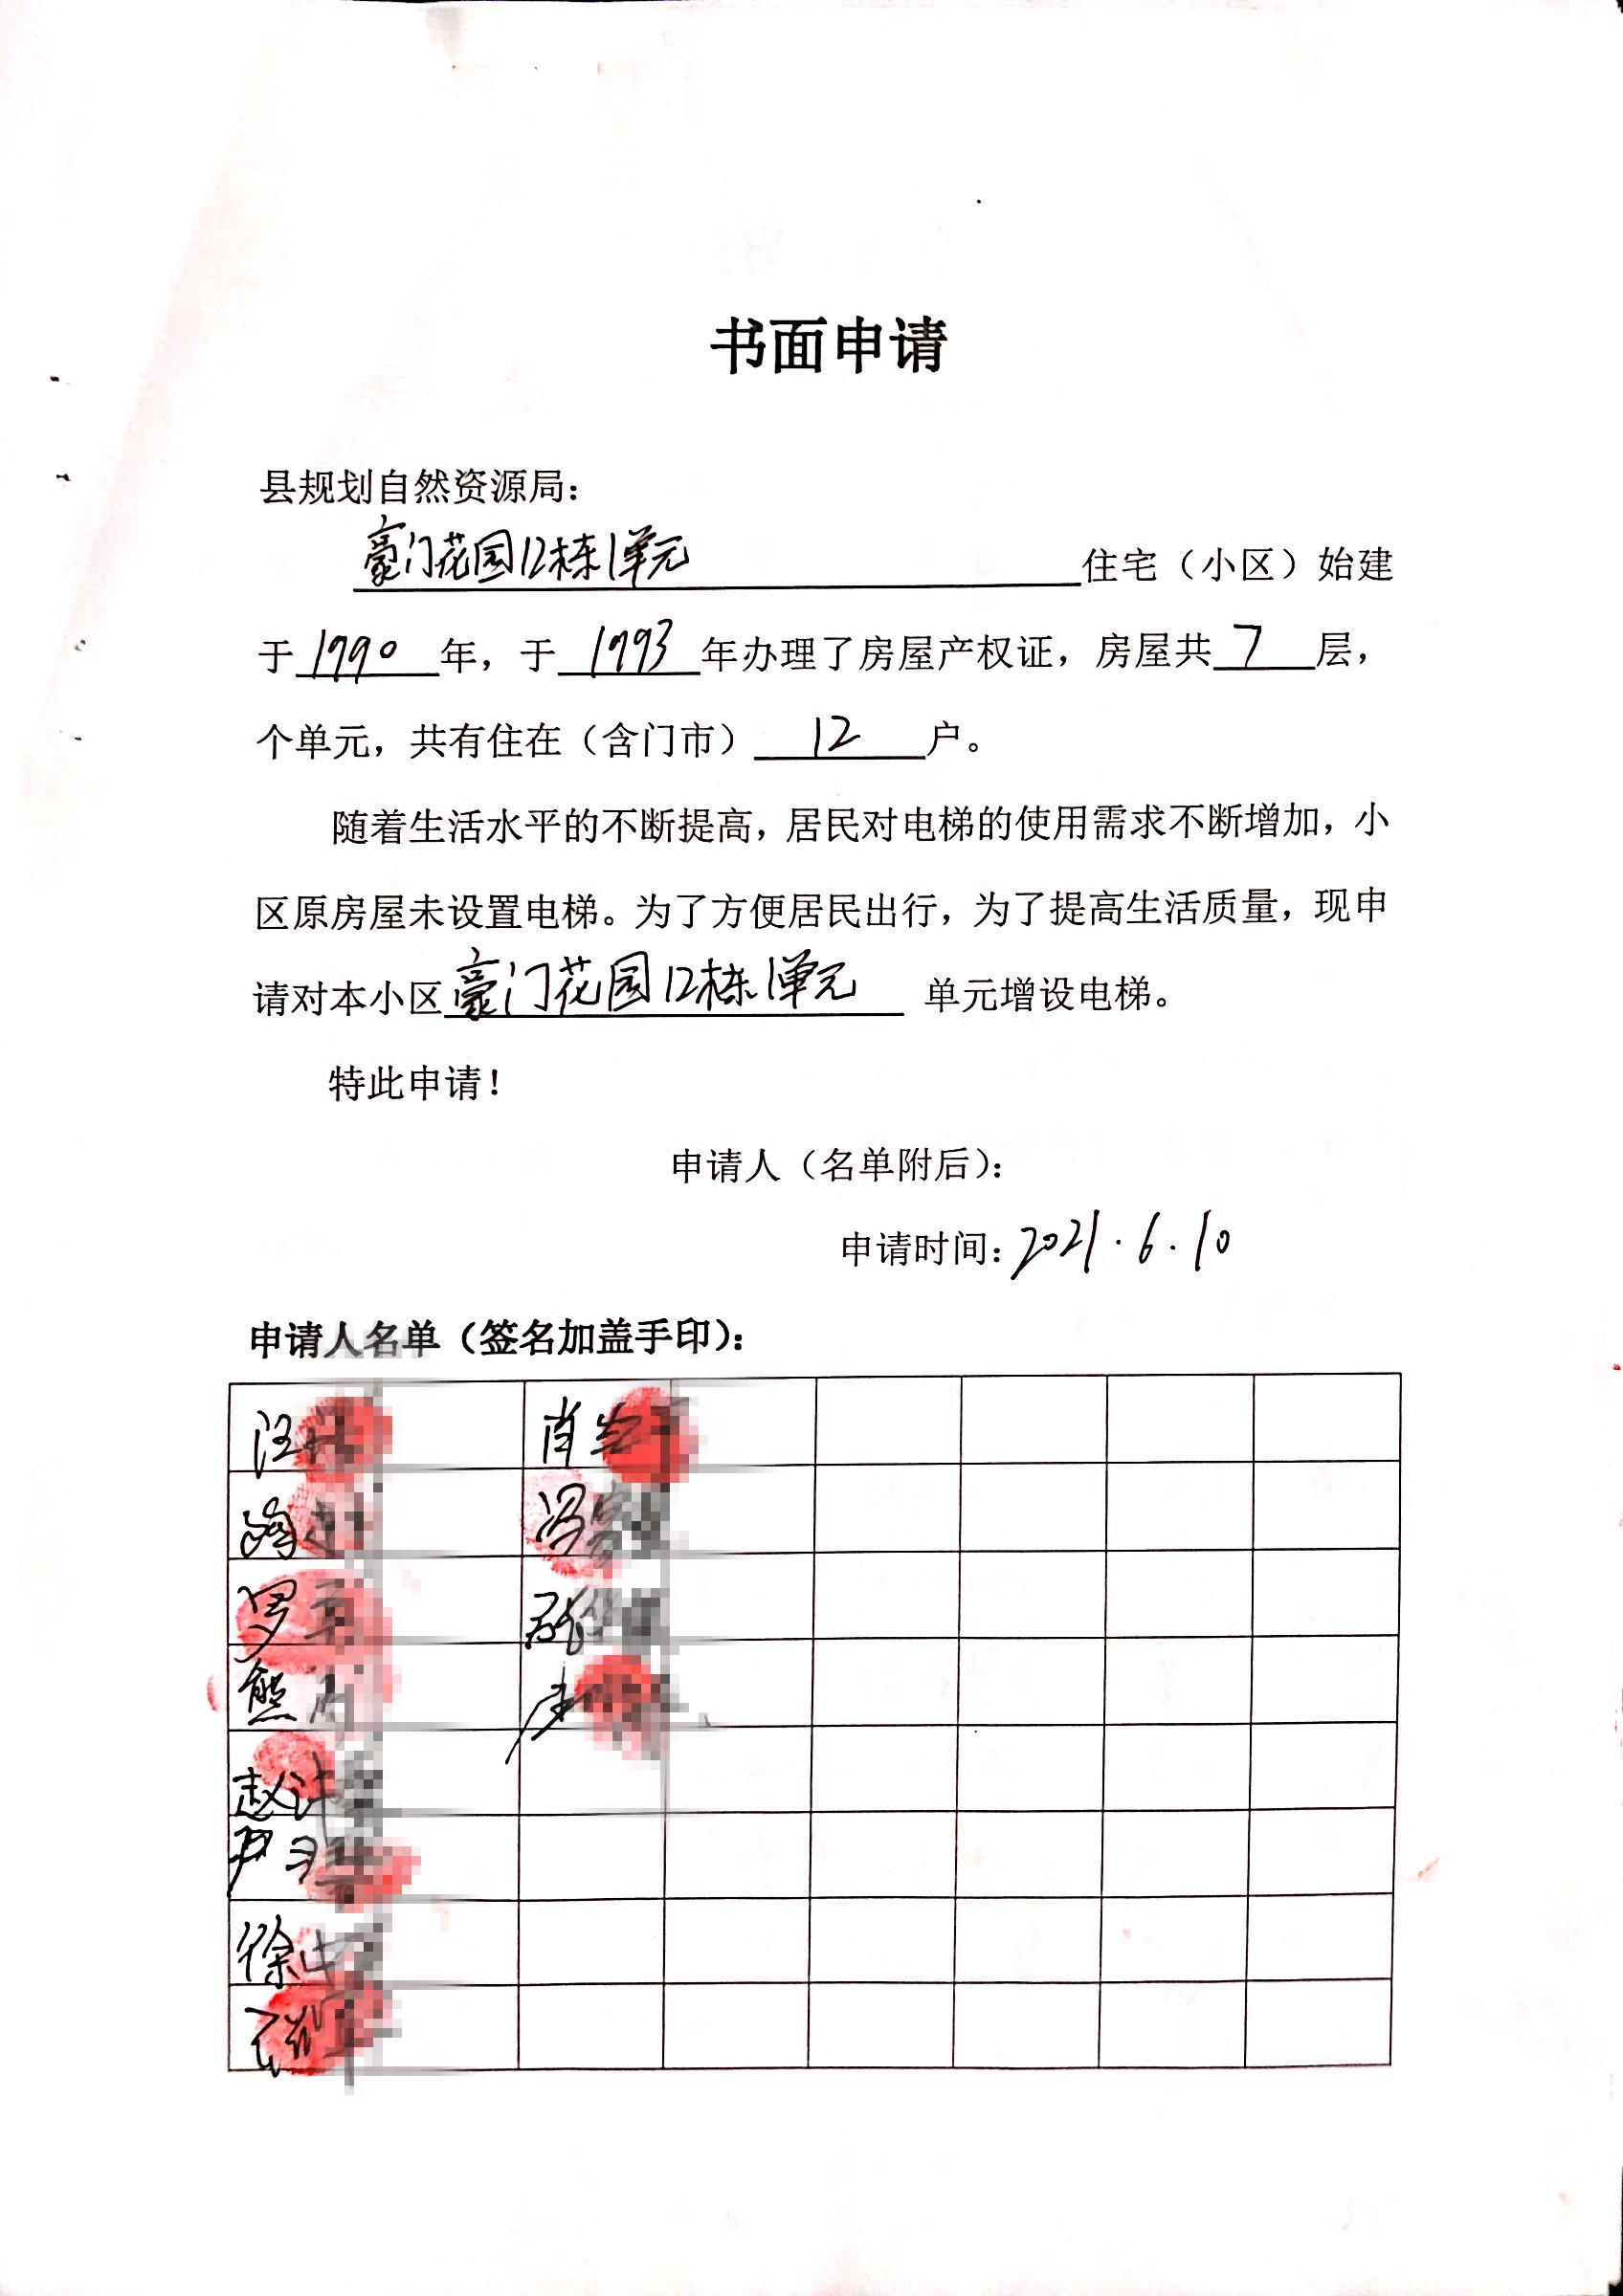 书面申请
县规划自然资源局：
豪门花园12栋1单元 住宅（小区）始建
于 1990 年，于 1993 年办理了房屋产权证，房屋共 7 层，
个单元，共有住在（含门市） 12 户。
随着生活水平的不断提高，居民对电梯的使用需求不断增加，小
区原房屋未设置电梯。为了方便居民出行，为了提高生活质量，现申
请对本小区豪门花园12栋1单元 单元增设电梯。
特此申请！
申请人（名单附后）：
申请时间：2021.6.10
申请人名单（签名加盖手印）：
汪 肖
陶 冯
罗
熊
赵
尹
徐